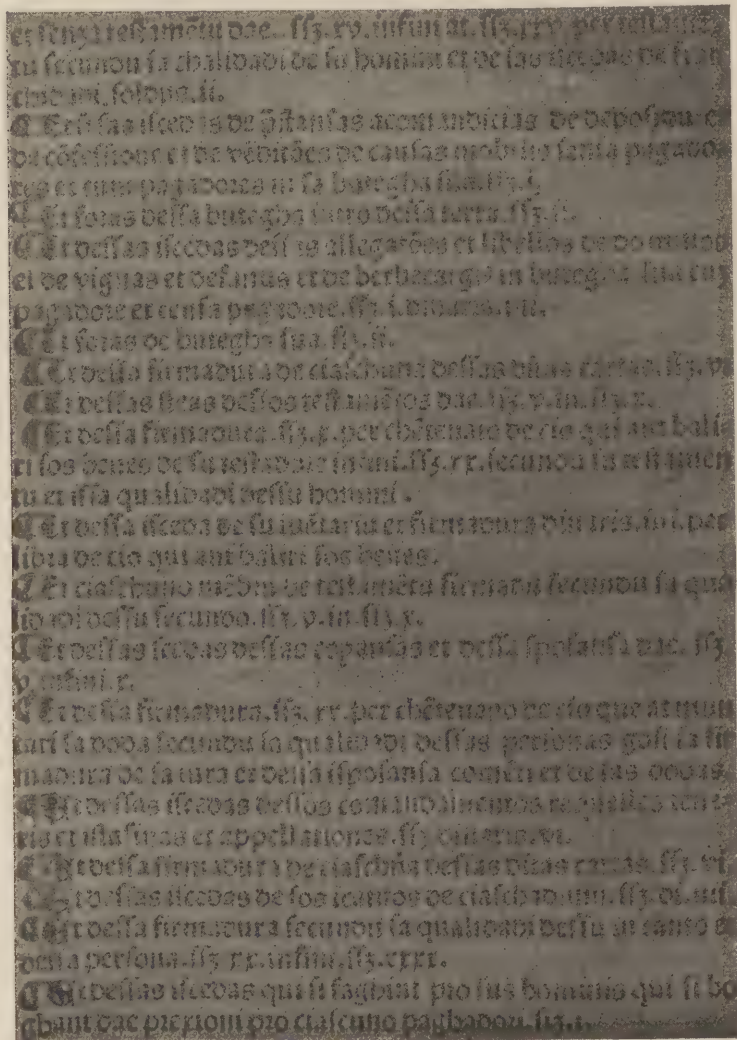 et senza testamētu dae. ssȝ. xv. infini at. ssȝ. xxv. per testamē
tu secundu sa chalidadi de su homini et de sas iscedas de fran
chidadi. soldos. ii.
¶ Et de sas iscedas de p̄stansas acomandicias de deposidu e
de cōfessione et de vēditōes de causas mobilis senza pagado
res et cum pagadores in sa butegha sua. ssȝ. i.
¶ Et foras dessa butegha intro dessa terra. ssȝ. ii.
¶ Et dessas iscedas dessas allegatōes et libellos de
et de vignas et de et de berbecargis in butegha sua cum
pagadore et senza pagadore. ssȝ. i. dinaris. vi.
¶ Et foras de butegha sua. ssȝ. ii.
¶ Et dessa firmadura de ciaschuna dessas ditas cartas. ssȝ. v.
¶ Et dessas dessos testamētos dae. ssȝ. v. in. ssȝ. x.
¶ Et dessa firmadura. ssȝ. x. per chētenaio de cio qui ant bali
ri sos benes de su testadore infini. ssȝ. xx. secundu sa testamen
tu et issa qualidadi dessu homini.
¶ Et dessa isceda de su inuētariu et firmadura dinaris. in i. per
libra de cio qui ant baliri sos benes.
¶ Et ciaschuno mēbru de testamētu firmadu secundu sa qua
lidadi dessu secundo. ssȝ. v. in. ssȝ. x.
¶ Et dessas iscedas dessas et dessa sposansa dae. ssȝ.
v. infini. x.
¶ Et dessa firmadura. ssȝ. xx. per chētenaro de cio que at mon
tari sa doda secundu sa qualidadi dessas personas gosi sa fir
madura de sa et dessa isposansa comēti et de sas dodas.
¶ Et dessas iscedas dessos comandamentos
et ista sinas et appellationes. ssȝ dinaris. vi.
¶ Et dessa firmadura de ciaschūa dessas ditas cartas. ssȝ. vi.
¶ Et dessas iscedas de sos de ciaschadunu. ssȝ.
¶ Et dessa firmadura secundu sa qualidadi dessu e
dessa persona. ssȝ xx. infini. ssȝ. xxxx.
¶ Et dessas iscedas qui si faghint pro sus hominis qui si bo
ghant dae prexioni pro ciascuno paghadori. ssȝ. i.